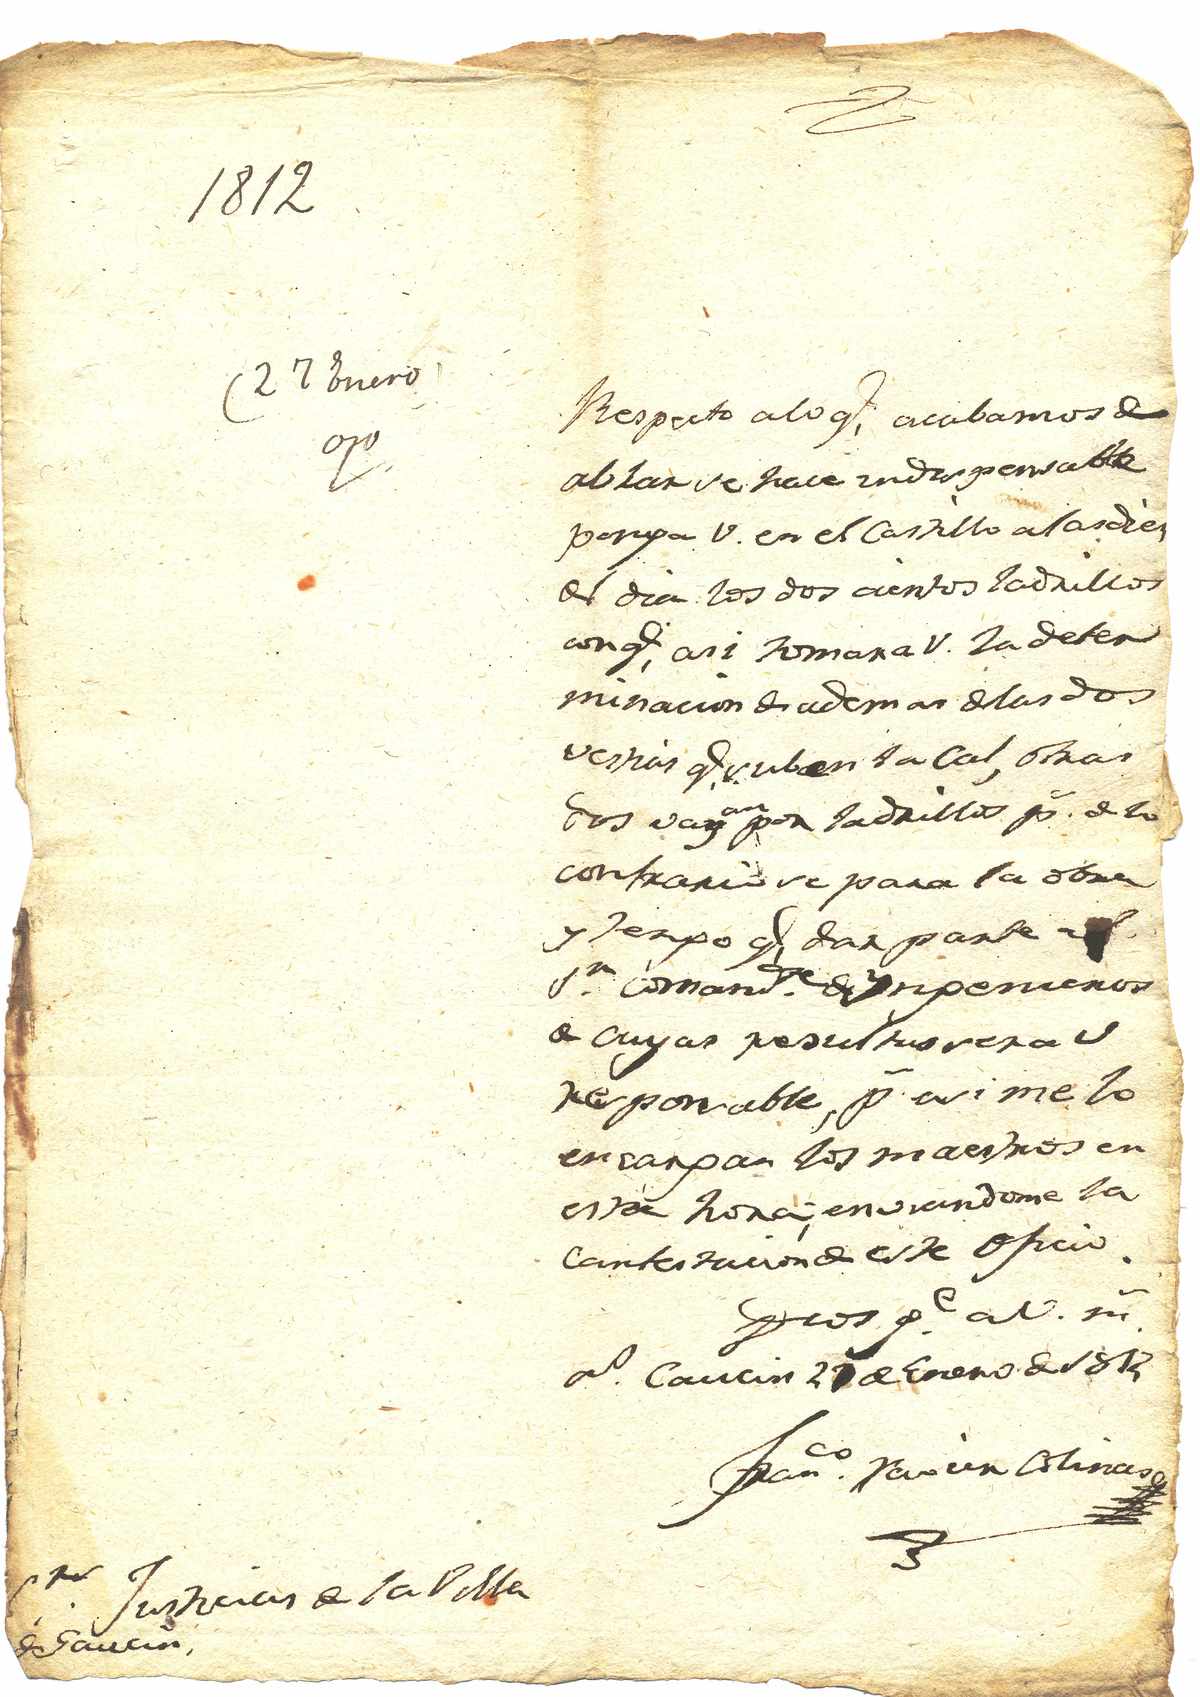 1812
(27 Enero)
ojo
Respecto alo q.e acabamos de
ablar se hace indispensable
ponga V. en el Castillo alasdiez
del dia los dos cientos ladrillos
conq.e asi tomara V. la deter
minacion de ademas delas dos
vestias q.e suben la Cal, otras
dos vayan por ladrillos p.r de lo
contrario se para la obra
y tengo q.e dar parte al
S.r Coman.te de Yngenieros
de cuyas resultas sera V
responsable, p.r asi me lo
encargan los maestros en
esta hora, enviandome la
Contestacion de este Oficio.
Dios g.e a V. m.s
a.s Gaucin 27 de Enero de 1812
Fran.co Xavier Colinas
S.res Justicias de la Villa
de Gaucin,